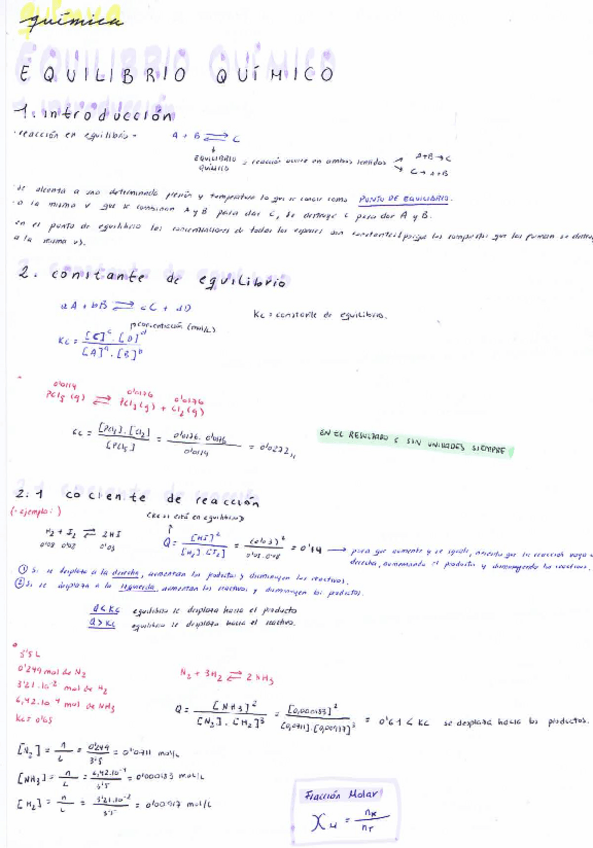 química
EQUILIBRIO QUÍMICO
1. introducción
- reacción en equilibrio - A + B ⇄ C
EQUILIBRIO QUÍMICO: reacción ocurre en ambos sentidos A+B → C
C → A+B
- se alcanza a una determinada presión y temperatura lo que se conoce como PUNTO DE EQUILIBRIO.
- a la misma v que se combinan A y B para dar C, se destruye C para dar A y B.
en el punto de equilibrio las concentraciones de todas las especies son constantes (porque los compuestos que los forman se
a la misma v).
2. constante de equilibrio
aA + bB ⇄ cC + dD
Kc = constante de equilibrio.
concentración (mol/L)
Kc = [C]^c · [D]^d / [A]^a · [B]^b
0'0114 0'0176 0'0176
PCl5 (g) ⇄ PCl3 (g) + Cl2 (g)
Kc = [PCl3] · [Cl2] / [PCl5] = 0'0176 · 0'0176 / 0'0114 = 0'0272,,
EN EL RESULTADO SIN UNIDADES SIEMPRE
2.1 cociente de reacción
(- ejemplo:) (no si está en equilibrio)
H2 + I2 ⇄ 2HI
Q = [HI]^2 / [H2] · [I2] = (0'03)^2 = 0'14 → para que aumente y se iguale, necesito que la reacción vaya a
derecha, aumentando el producto y disminuyendo los reactivos.
① Si se desplaza a la derecha, aumentan los productos y disminuyen los reactivos.
② Si se desplaza a la izquierda, aumentan los reactivos y disminuyen los productos.
Q < Kc equilibrio se desplaza hacia el producto
Q > Kc equilibrio se desplaza hacia el reactivo.
3'5 L
0'249 mol de N2
3'21·10^-2 mol de H2
6,42·10^-4 mol de NH3
Kc = 0'65
N2 + 3H2 ⇄ 2NH3
Q = [NH3]^2 / [N2] · [H2]^3 = [0,000183]^2 / [0,0711] · [0,00917]^3 = 0'61 < Kc se desplaza hacia los productos.
[N2] = n / L = 0'249 / 3'5 = 0'0711 mol/L
[NH3] = n / L = 6,42·10^-4 / 3'5 = 0'000183 mol/L
[H2] = n / L = 3'21·10^-2 / 3'5 = 0'00917 mol/L
Fracción Molar